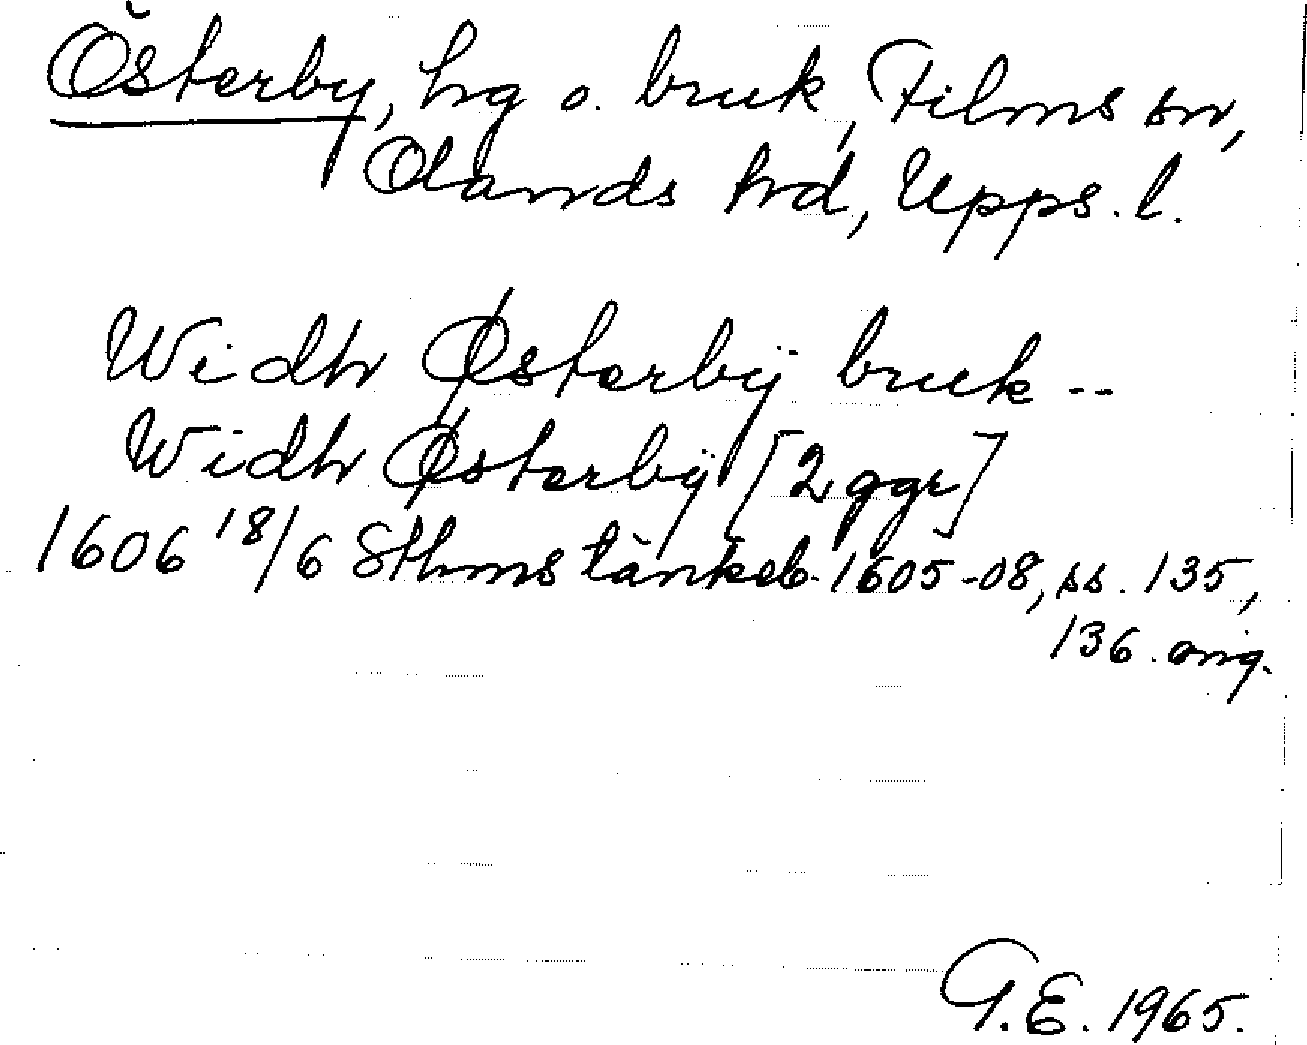 Österby, hg o. bruk, Films sn,
Olands hd, Upps. l.
Widh Østerbÿ bruk --
Widh Østerbÿ [2 ggr]
1606 18/6 Sthms tänkeb. 1605-08, ss. 135,
136. orig.
G.E. 1965.